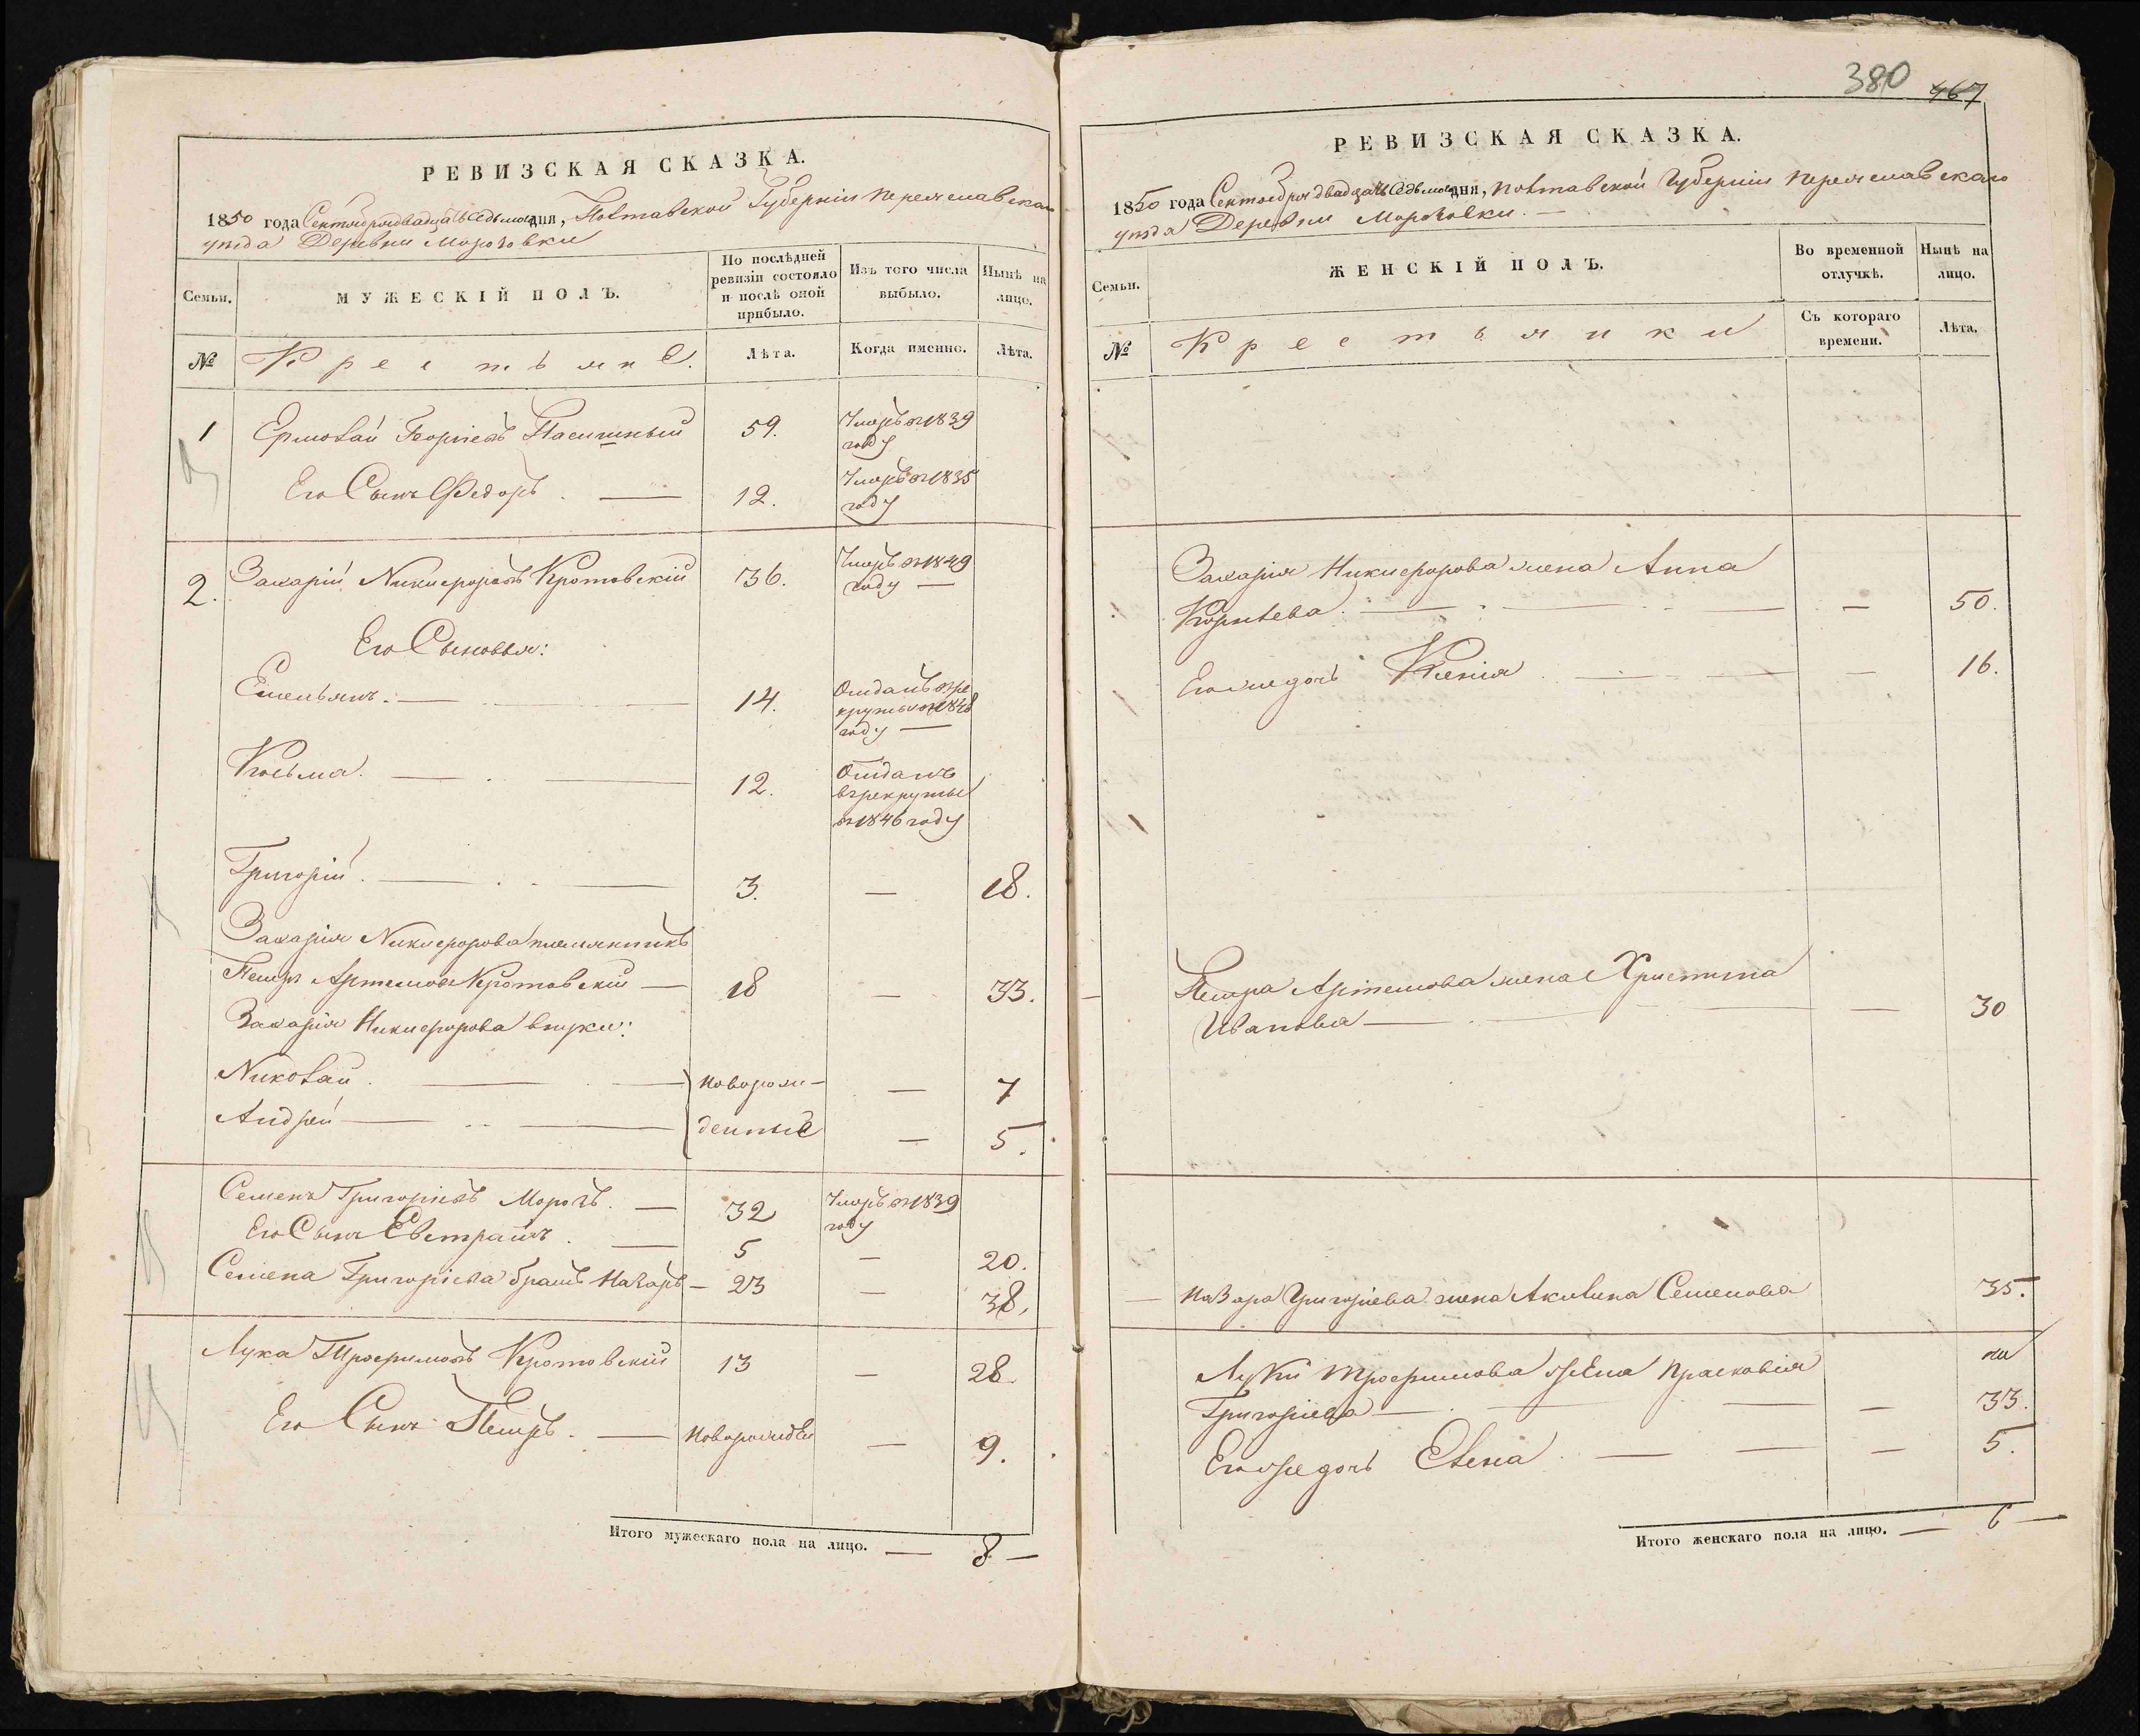 РЕВИЗСКАЯ СКАЗКА.
1850 года Сентября двадцать седьмого дня, Полтавской Губерніи Переяславскаго
уѣзда Деревни Морозовки
Семьи.
МУЖЕСКІЙ ПОЛЪ.
По послѣдней ревизіи состояло и послѣ оной прибыло.
Изъ того числа выбыло.
Нынѣ на лицо.
№
Крестьяне.
Лѣта.
Когда именно.
Лѣта.
1 Ермолай Георгіевъ Пасишный 59. Умеръ въ 1839
году
Его Сынъ Федоръ. — 12. Умеръ въ 1835
году
2. Захарій Никифоровъ Кротовскій 36. Умеръ въ 1849
году —
Его Сыновья:
Емельянъ. — 14. Отданъ въ ре
круты въ 1848
году —
Козьма. — 12. Отданъ
въ рекруты
въ 1846 году
Григорій. — 3. — 18.
Захарія Никифорова племянникъ
Петръ Артемовъ Кротовскій — 18 — 33.
Захарія Никифорова внуки:
Николай. — новорож- — 7
Андрей — денные — 5.
Семенъ Григоріевъ Морозъ. — 32 Умеръ въ 1839
году
Его Сынъ Евстратъ. — 5 — 20.
Семена Григоріева братъ Назаръ — 23 — 38.
Лука Трофимовъ Кротовскій 13 — 28.
Его Сынъ Петръ. — новорожден — 9.
Итого мужескаго пола на лицо. — 8 —
380 467
РЕВИЗСКАЯ СКАЗКА.
1850 года Сентября двадцать седьмого дня, Полтавской Губерніи Переяславскаго
уѣзда Деревни Морозовки. —
Семьи.
ЖЕНСКІЙ ПОЛЪ.
Во временной отлучкѣ.
Нынѣ на лицо.
№
Крестьянки
Съ котораго времени.
Лѣта.
Захарія Никифорова жена Анна
Корнѣева. — — 50.
Его же дочь Ксенія — — 16.
Петра Артемова жена Христина
Иванова — — 30
Назара Григоріева жена Акилина Семенова 35.
Луки Трофимова жена Прасковія
Григоріева — — 33.
Его же дочь Елена. — — 5.
Итого женскаго пола на лицо. — 6 —